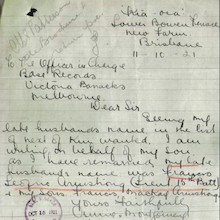 "Kia-ora"
Lower Bowen Terrace
New Farm
Brisbane
11-10-21
To The Officer in Charge
Base Records
Victoria Barracks
Melbourne
Dear Sir
Seeing my
late husbands name in the list
of next of kin wanted. I am
writing on behalf of my son
as I have remarried my late
husbands name was Frances
George Armstrong
&
Yours faithfully
Montgomery
OCT 1921